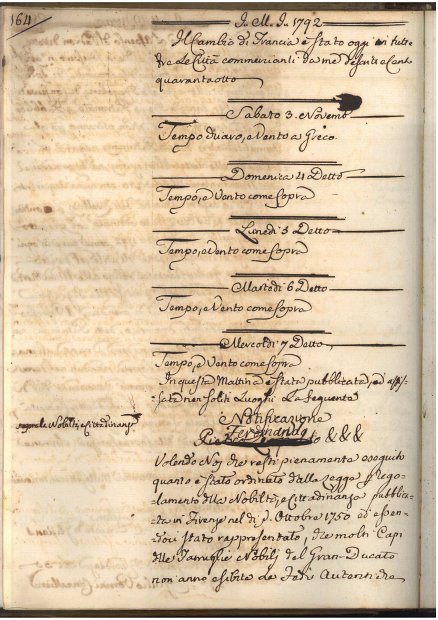 164
J. M. J. 1792
Il Cambio di Francia è stato oggi in tutte
tre le Città commercianti da me descritte Cent
quarantotto
Sabato 3. Novemb
Tempo e Vento a Greco
Domenica 4 Detto
Tempo, e Vento come sopra
Lunedì 5 Detto
Tempo, e Vento come sopra
Martedì 6 Detto
Tempo, e Vento come sopra
Mercoldì 7 Detto
Tempo, e Vento come sopra
In questa Mattina è stata pubblicata, ed affis-
sata nei soliti Luoghi la seguente
Notificazione
sopra la Nobiltà, e Cittadinanza
Ferdinando
&&&
Volendo Noi che resti pienamente eseguito
quanto è stato ordinato dalla Legge, e Rego-
lamento della Nobiltà, e Cittadinanza pubblica-
ta in Firenze nel dì p. Ottobre 1750 ed essen-
doci stato rappresentato, che molti Capi
delle Famiglie Nobili del Gran-Ducato
non anno esibite le Fedi Autentiche